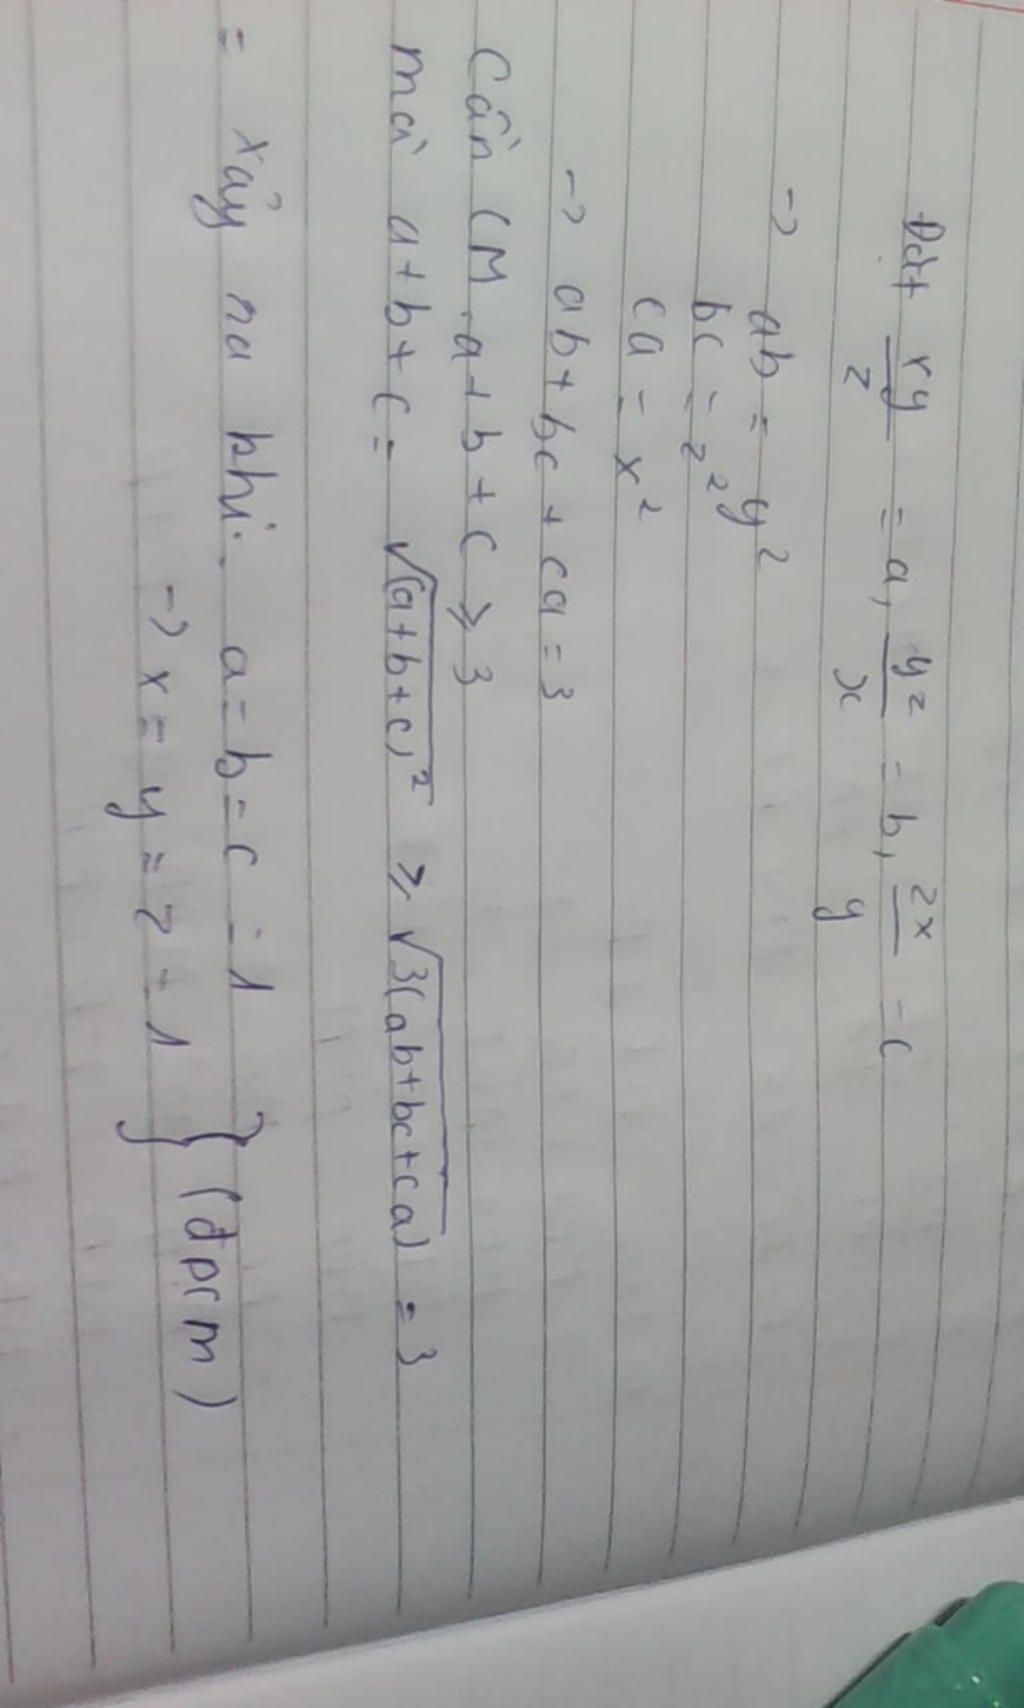 Đặt xy/z = a, yz/x = b, zx/y = c
-> ab = y²
bc = z²
ca = x²
-> ab + bc + ca = 3
Cần CM a + b + c ≥ 3
mà a + b + c = √(a+b+c)² ≥ √3(ab+bc+ca) = 3
= xảy ra khi a = b = c = 1
-> x = y = z = 1 } (đpcm)